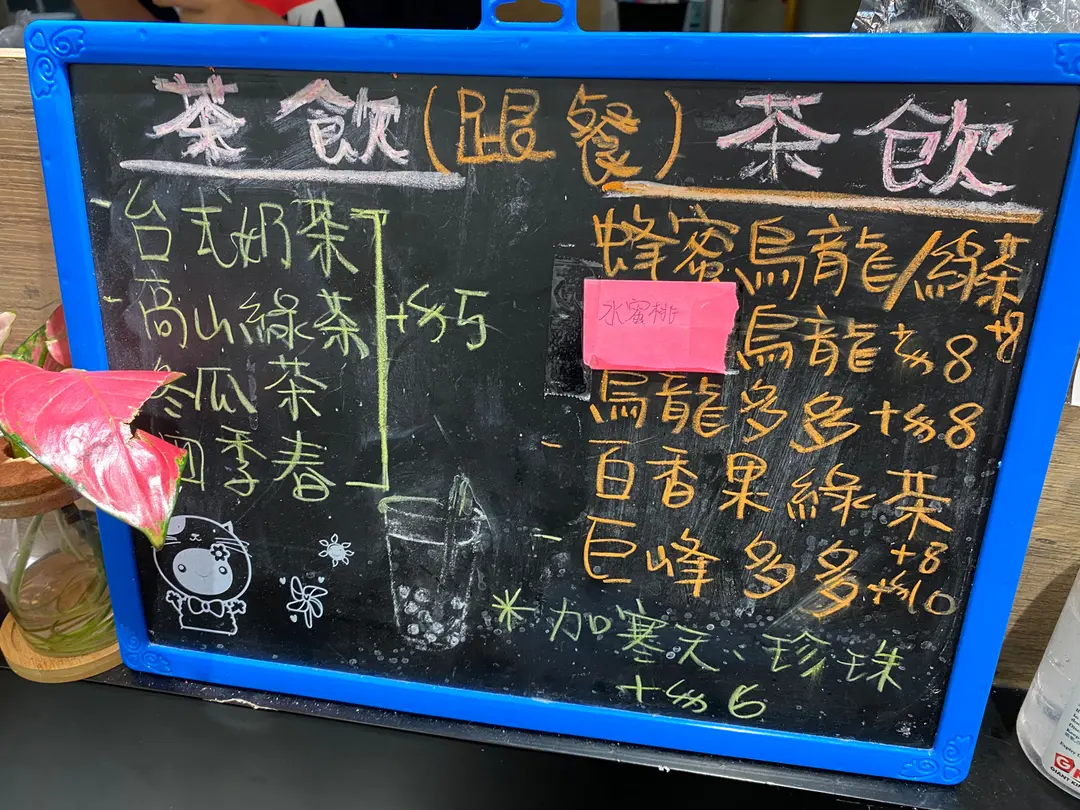 茶飲(跟餐)茶飲
台式奶茶
高山綠茶
冬瓜茶
四季春
+$5
蜂蜜烏龍/綠茶
+8
水蜜桃
烏龍+$8
烏龍多多+$8
百香果綠茶
+8
巨峰多多+$10
*加寒天、珍珠
+$6